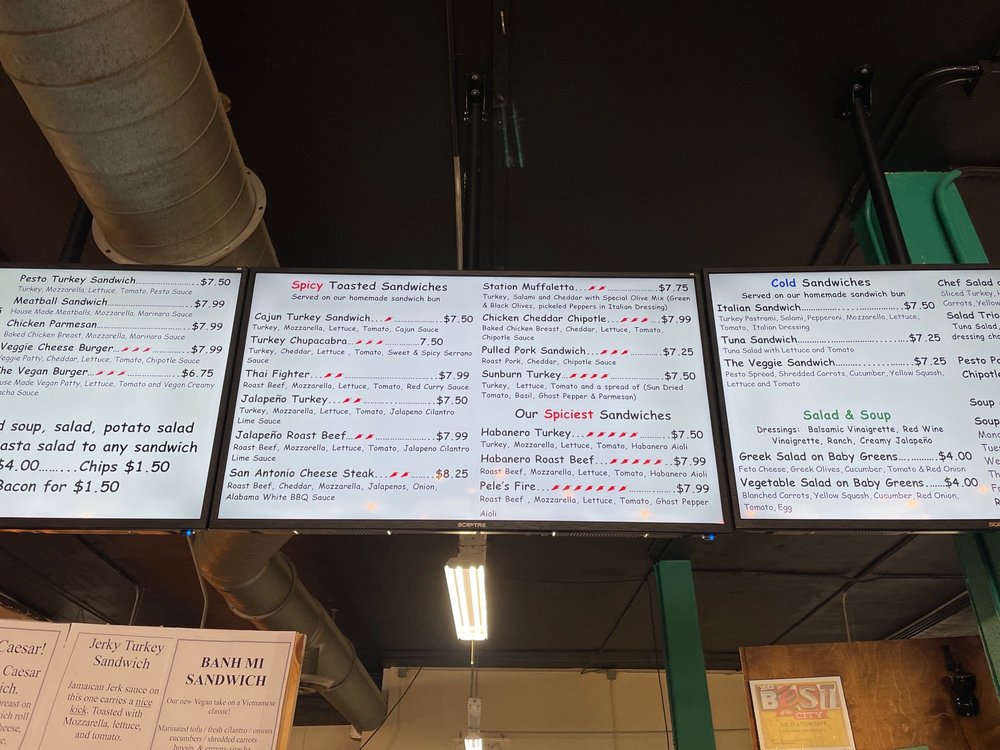 Pesto Turkey Sandwich.......................$7.50
Turkey, Mozzarella, Lettuce, Tomato, Pesto Sauce
Meatball Sandwich............................$7.99
House Made Meatballs, Mozzarella, Marinara Sauce
Chicken Parmesan............................$7.99
Baked Chicken Breast, Mozzarella, Marinara Sauce
Veggie Cheese Burger..............$7.99
Veggie Patty, Cheddar, Lettuce, Tomato, Chipotle Sauce
The Vegan Burger..............$6.75
House Made Vegan Patty, Lettuce, Tomato and Vegan Creamy
soup, salad, potato salad
pasta salad to any sandwich
$4.00.........Chips $1.50
Bacon for $1.50
Spicy Toasted Sandwiches
Served on our homemade sandwich bun
Cajun Turkey Sandwich................$7.50
Turkey, Mozzarella, Lettuce, Tomato, Cajun Sauce
Turkey Chupacabra..............7.50
Turkey, Cheddar, Lettuce , Tomato, Sweet & Spicy Serrano
Sauce
Thai Fighter..........................$7.99
Roast Beef, Mozzarella, Lettuce, Tomato, Red Curry Sauce
Jalapeño Turkey.....................$7.50
Turkey, Mozzarella, Lettuce, Tomato, Jalapeno Cilantro
Lime Sauce
Jalapeño Roast Beef...................$7.99
Roast Beef, Mozzarella, Lettuce, Tomato, Jalapeno Cilantro
Lime Sauce
San Antonio Cheese Steak............$8.25
Roast Beef, Cheddar, Mozzarella, Jalapenos, Onion,
Alabama White BBQ Sauce
Station Muffaletta...................$7.75
Turkey, Salami and Cheddar with Special Olive Mix (Green
& Black Olives, pickeled Peppers in Italian Dressing)
Chicken Cheddar Chipotle...........$7.99
Baked Chicken Breast, Cheddar, Lettuce, Tomato,
Chipotle Sauce
Pulled Pork Sandwich..............$7.25
Roast Pork, Cheddar, Chipotle Sauce
Sunburn Turkey....................$7.50
Turkey, Lettuce, Tomato and a spread of (Sun Dried
Tomato, Basil, Ghost Pepper & Parmesan)
Our Spiciest Sandwiches
Habanero Turkey...................$7.50
Turkey, Mozzarella, Lettuce, Tomato, Habanero Aioli
Habanero Roast Beef...............$7.99
Roast Beef, Mozzarella, Lettuce, Tomato, Habanero Aioli
Pele's Fire.........................$7.99
Roast Beef , Mozzarella, Lettuce, Tomato, Ghost Pepper
Aioli
SCEPTRE
Cold Sandwiches
Served on our homemade sandwich bun
Italian Sandwich............................$7.50
Turkey Pastrami, Salami, Pepperoni, Mozzarella, Lettuce,
Tomato, Italian Dressing
Tuna Sandwich..............................$7.25
Tuna Salad with Lettuce and Tomato
The Veggie Sandwich......................$7.25
Pesto Spread, Shredded Carrots, Cucumber, Yellow Squash,
Lettuce and Tomato
Salad & Soup
Dressings: Balsamic Vinaigrette, Red Wine
Vinaigrette, Ranch, Creamy Jalapeño
Greek Salad on Baby Greens.........$4.00
Feta Cheese, Greek Olives, Cucumber, Tomato & Red Onion
Vegetable Salad on Baby Greens......$4.00
Blanched Carrots, Yellow Squash, Cucumber, Red Onion,
Tomato, Egg
Chef Salad
Sliced Turkey,
Carrots,
Salad Trio
Tuna Salad,
dressing
Pesto
Soup
Soup
Caesar!
Caesar
Jerky Turkey
Sandwich
Jamaican Jerk sauce on
this one carries a nice
kick. Toasted with
Mozzarella, lettuce,
and tomato.
BANH MI
SANDWICH
Our new Vegan take on a Vietnamese
classic!
Marinated tofu / fresh cilantro / onions
cucumbers / shredded carrots
BEST
of the CITY
THE STATION CAFE